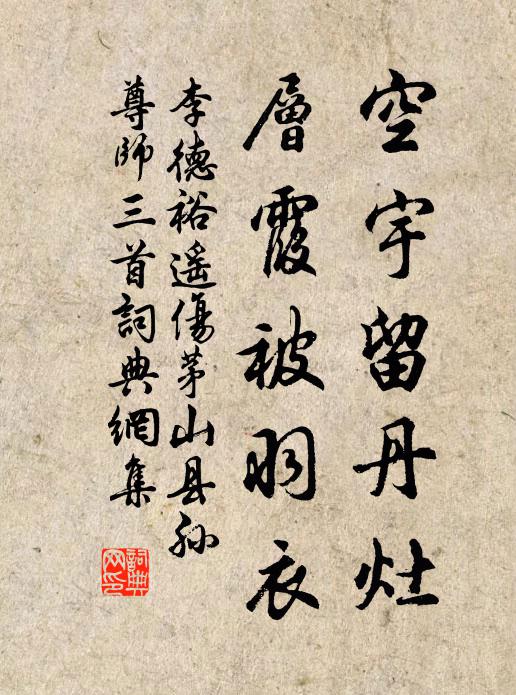 空宇留丹灶
層霞被羽衣
李德裕遥傷茅山县孙
尊師三首詞典網集
詞典网印